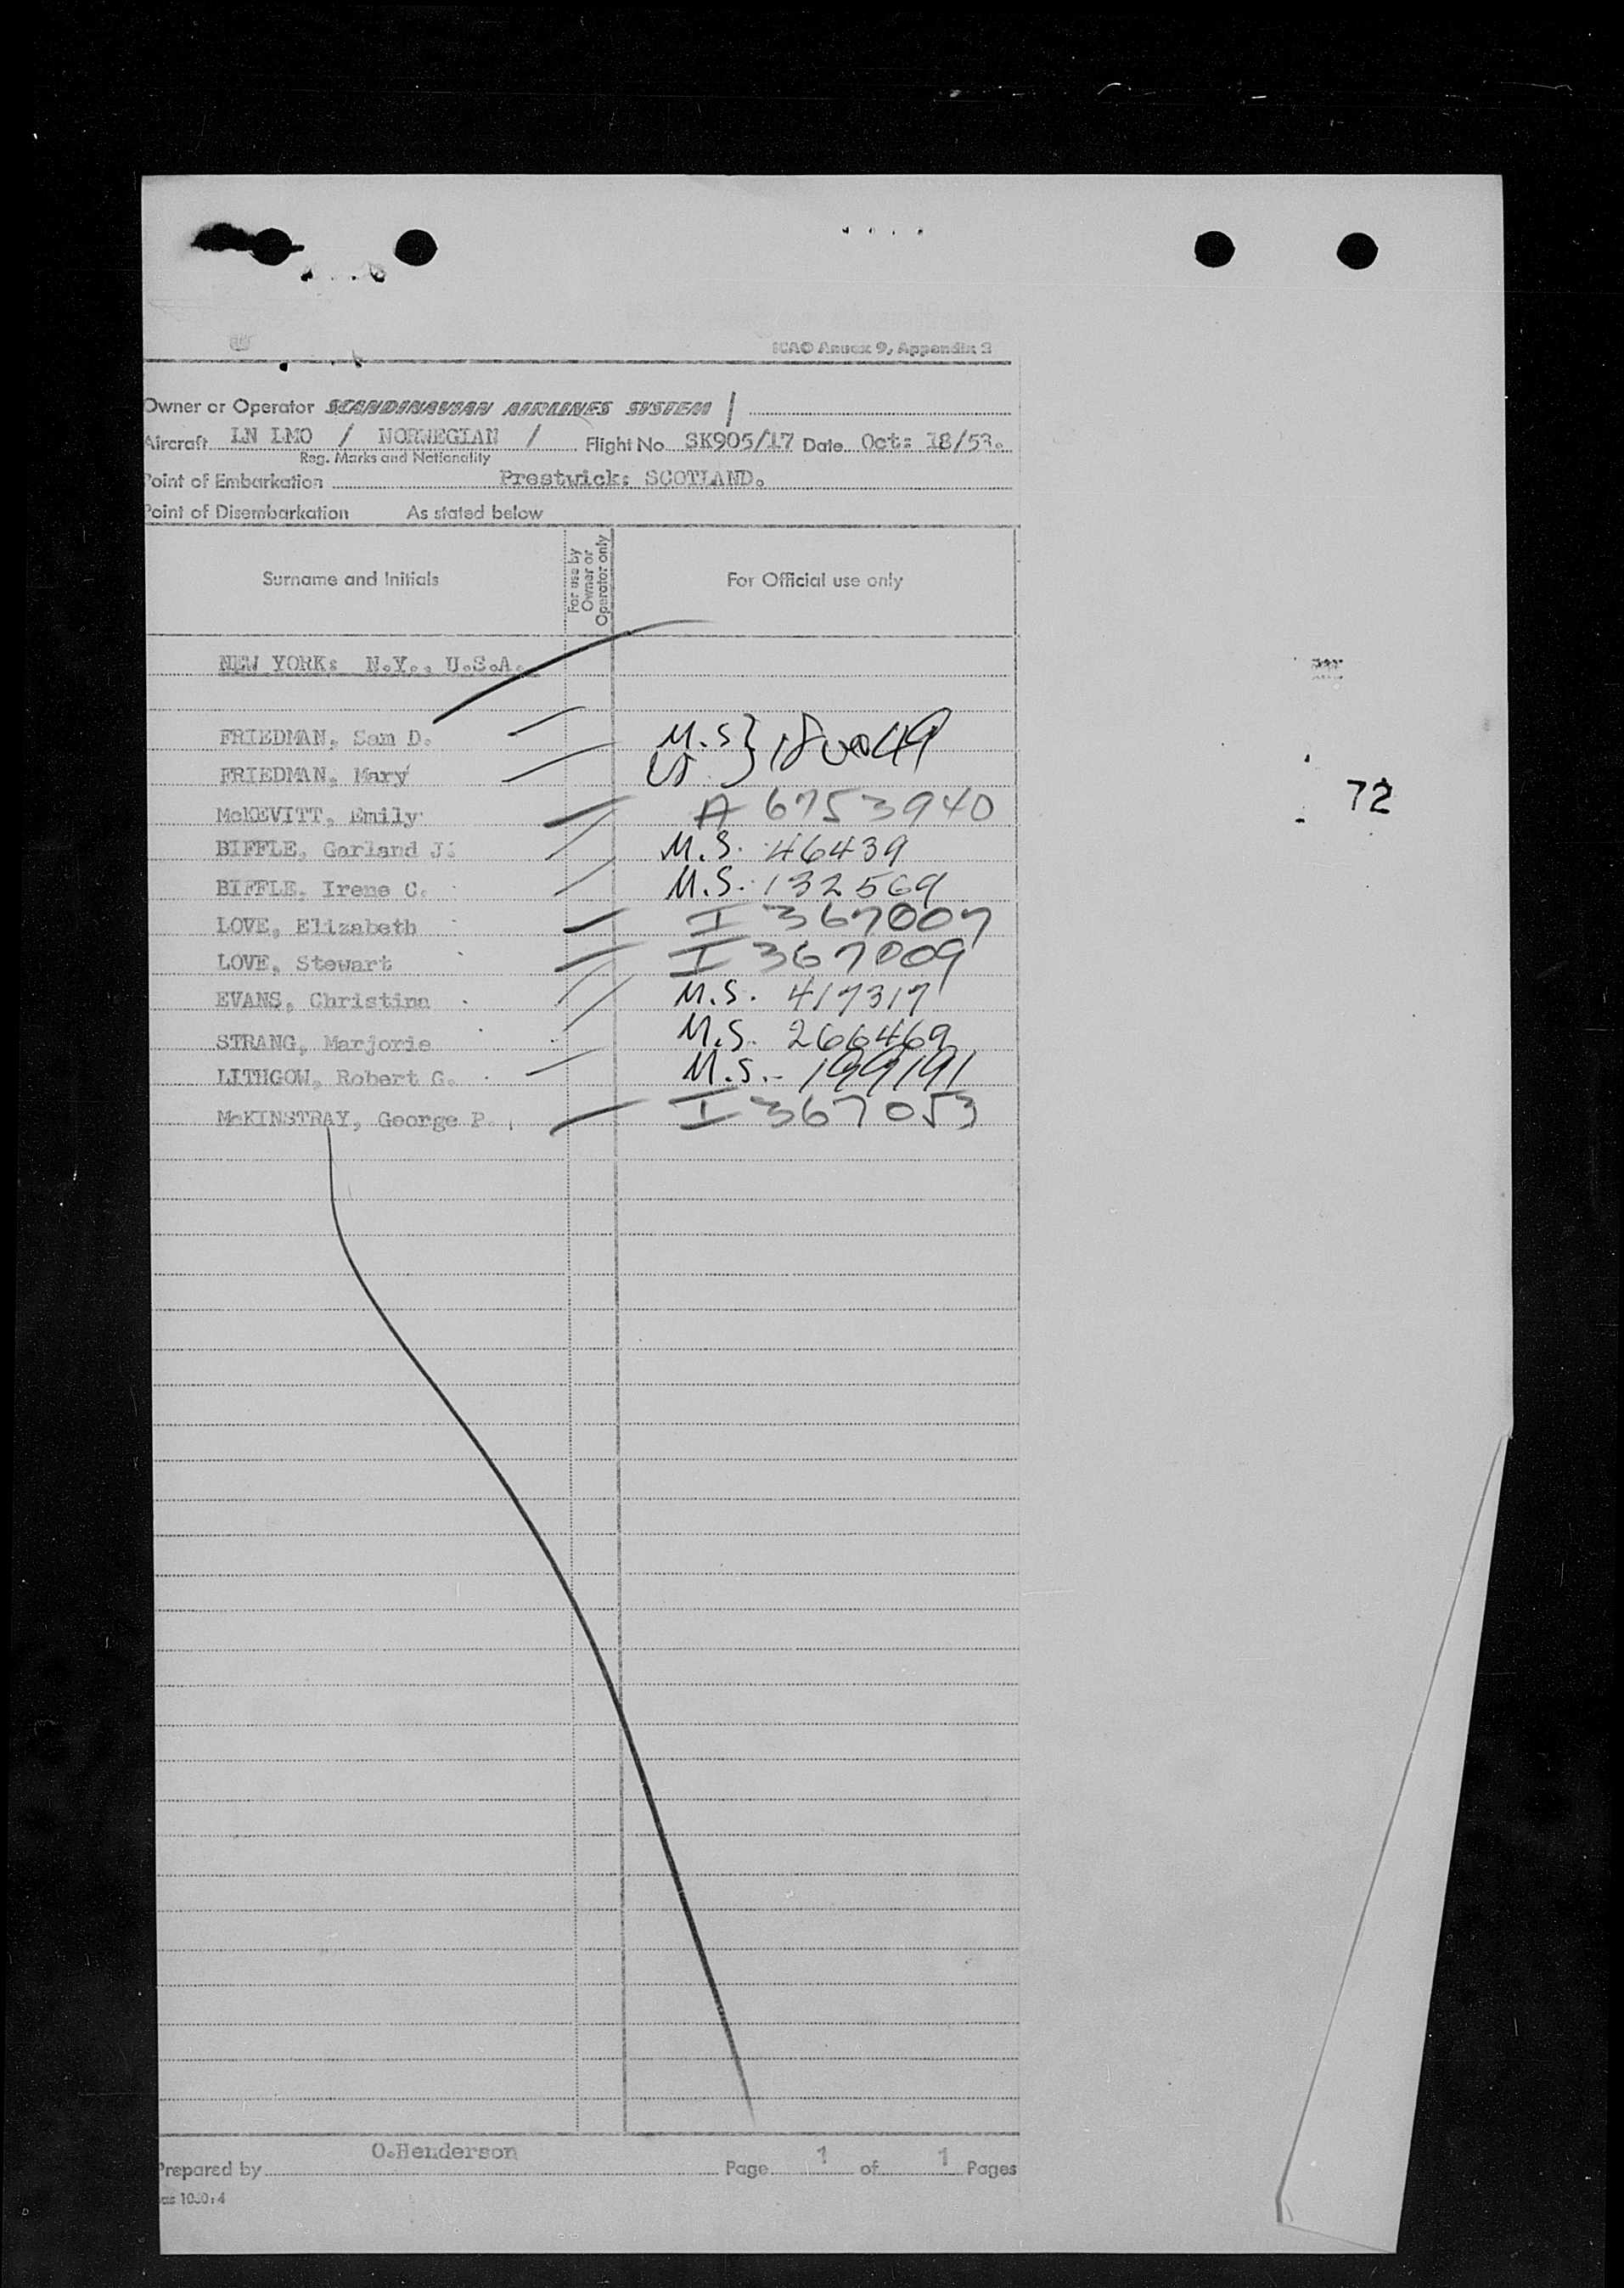 ICAO Annex 9, Appendix 3
Owner or Operator SCANDINAVIAN AIRLINES SYSTEM /
Aircraft LN LMO / NORWEGIAN / Flight No SK905/17 Date Oct: 18/53.
Reg. Marks and Nationality
Point of Embarkation Prestwick: SCOTLAND.
Point of Disembarkation As stated below
Surname and Initials For use by Owner or Operator only For Official use only
NEW YORK: N.Y., U.S.A.
FRIEDMAN, Sam D. M.S }
FRIEDMAN, Mary
McKEVITT, Emily A 6753940
BIFFLE, Garland J. M.S. 46439
BIFFLE, Irene C. M.S. 132569
LOVE, Elizabeth I 367007
LOVE, Stewart I 367009
EVANS, Christina M.S. 417317
STRANG, Marjorie M.S. 266469
LITHGOW, Robert G. M.S. - 199191
McKINSTRAY, George P. I 367053
72
O.Henderson
Prepared by Page 1 of 1 Pages